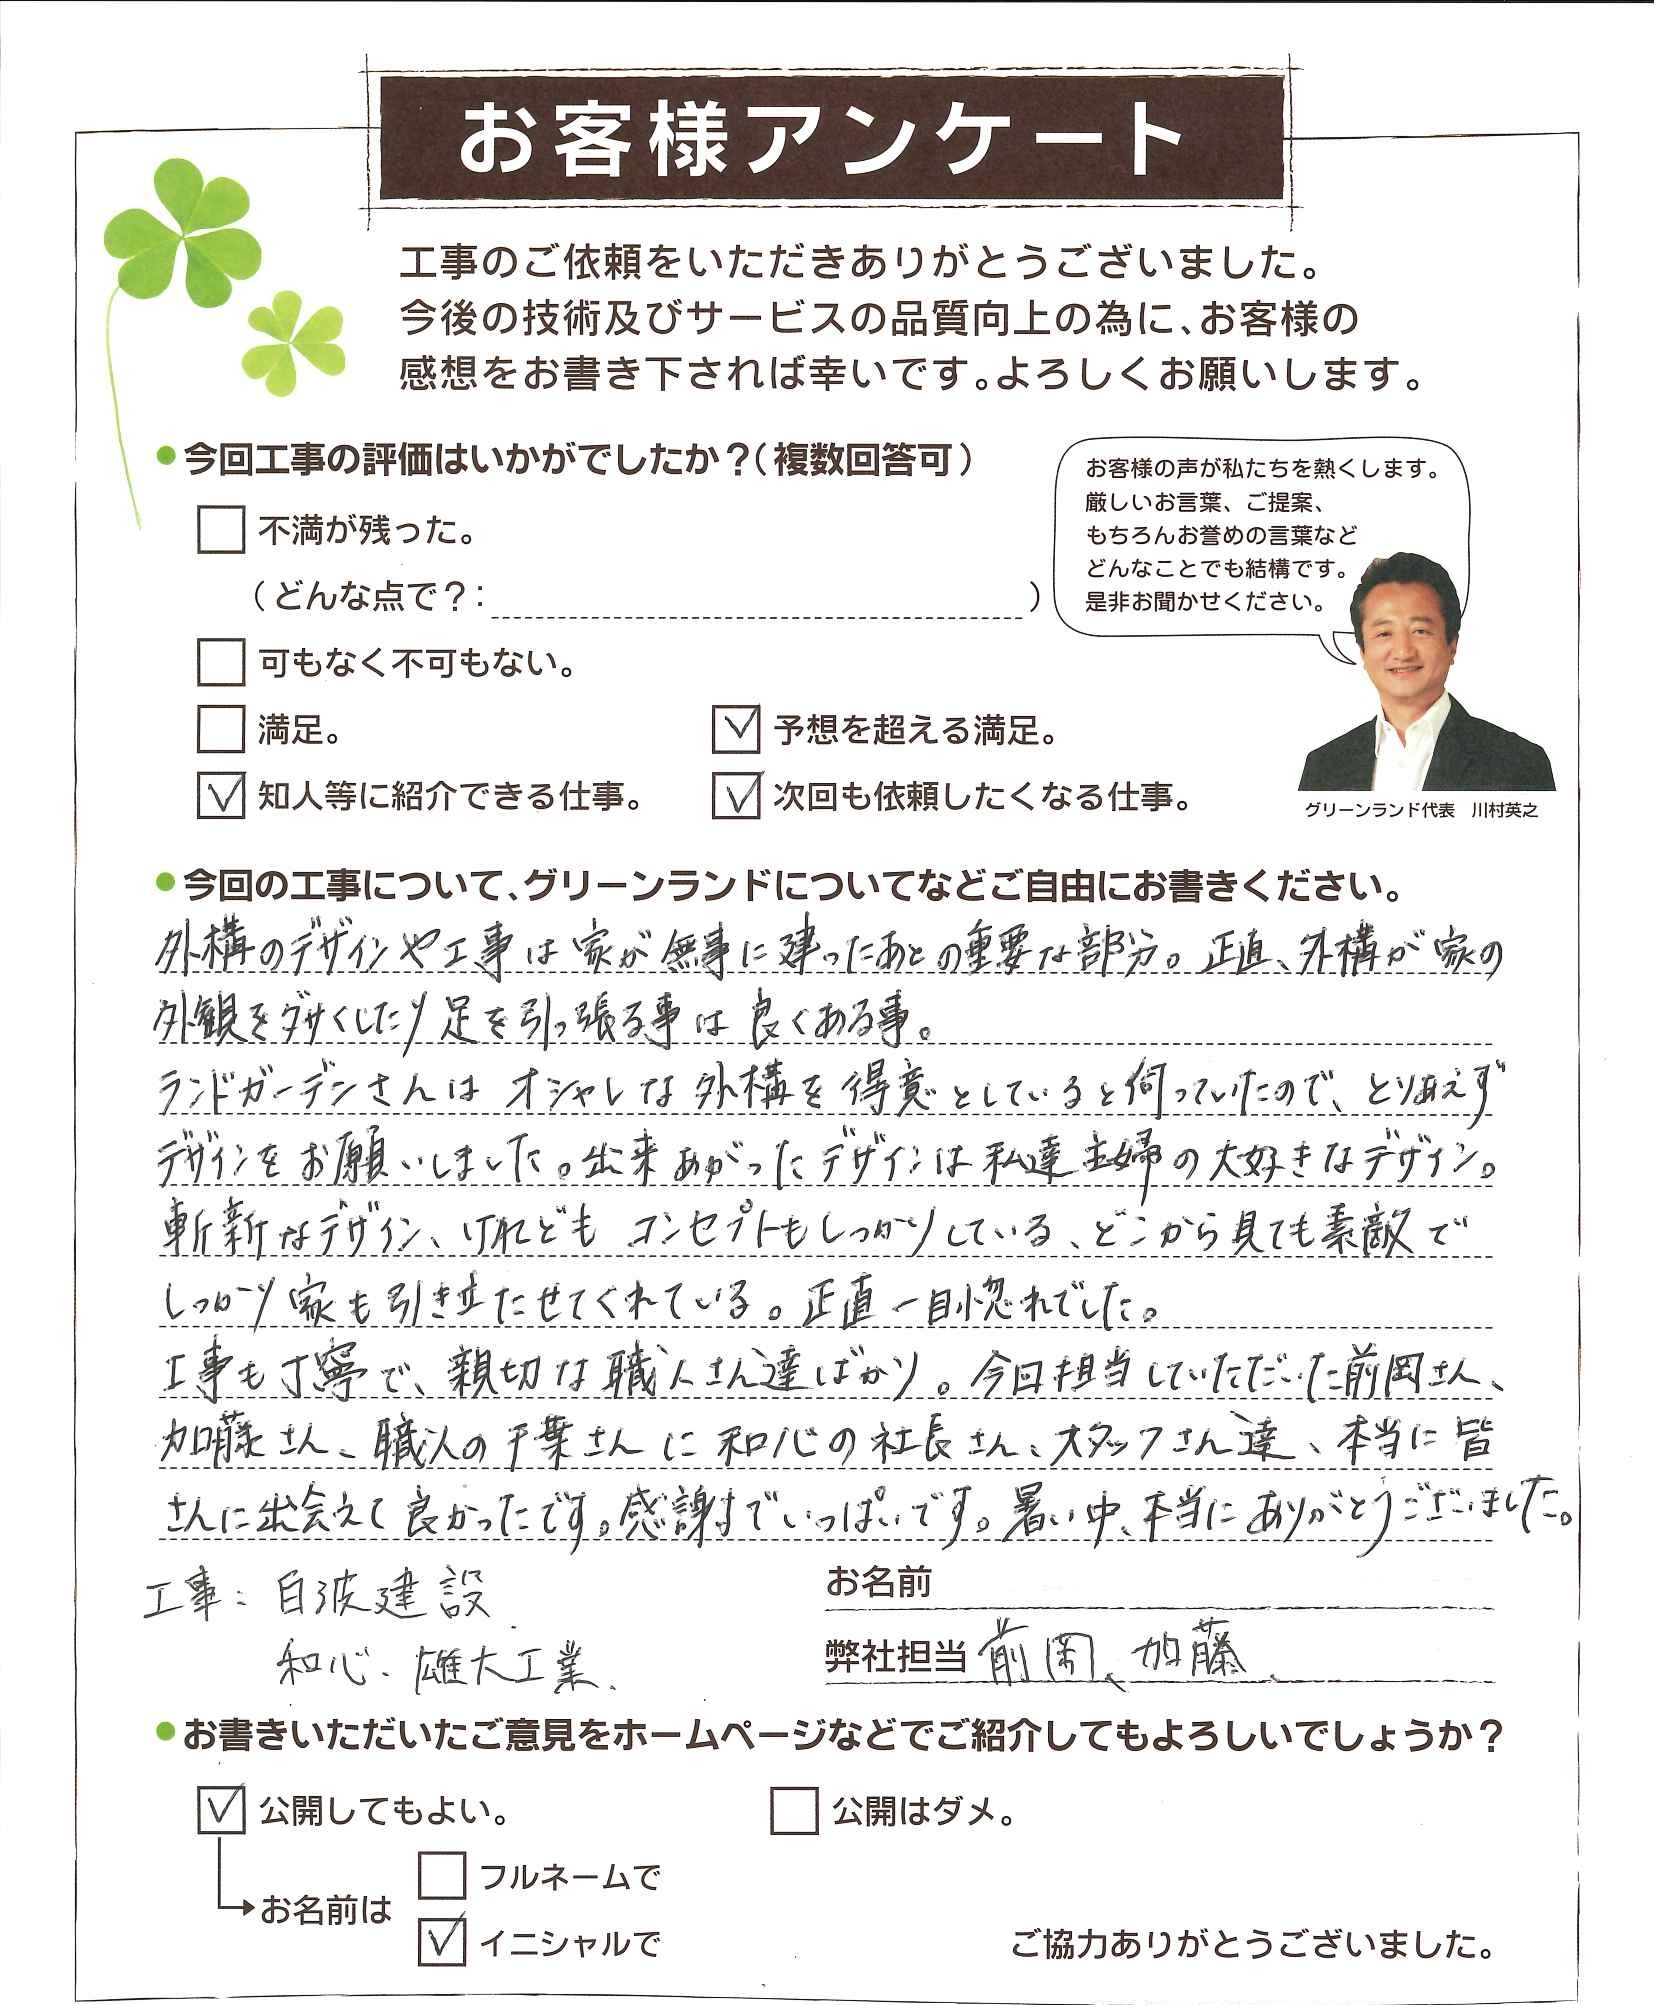 お客様アンケート
工事のご依頼をいただきありがとうございました。
今後の技術及びサービスの品質向上の為に、お客様の
感想をお書き下されば幸いです。よろしくお願いします。
今回工事の評価はいかがでしたか？（複数回答可）
不満が残った。
（どんな点で？：　）
可もなく不可もない。
満足。
予想を超える満足。
知人等に紹介できる仕事。
次回も依頼したくなる仕事。
お客様の声が私たちを熱くします。
厳しいお言葉、ご提案、
もちろんお誉めの言葉など
どんなことでも結構です。
是非お聞かせください。
グリーンランド代表　川村英之
今回の工事について、グリーンランドについてなどご自由にお書きください。
外構のデザインや工事は家が無事に建ったあとの重要な部分。正直、外構が家の
外観をダサくしたり足を引っ張る事は良くある事。
ランドガーデンさんはオシャレな外構を得意としていると伺っていたので、とりあえず
デザインをお願いしました。出来あがったデザインは私達主婦の大好きなデザイン。
斬新なデザイン、けれどもコンセプトもしっかりしている、どこから見ても素敵で
しっかり家も引き立たせてくれている。正直一目惚れでした。
工事も丁寧で、親切な職人さん達ばかり。今回担当していただいた前岡さん、
加藤さん、職人の千葉さんに和心の社長さん、スタッフさん達、本当に皆
さんに出会えて良かったです。感謝でいっぱいです。暑い中、本当にありがとうございました。
工事：白波建設
和心、雄大工業、
お名前
弊社担当 前岡、加藤、
お書きいただいたご意見をホームページなどでご紹介してもよろしいでしょうか？
公開してもよい。
公開はダメ。
お名前は
フルネームで
イニシャルで
ご協力ありがとうございました。